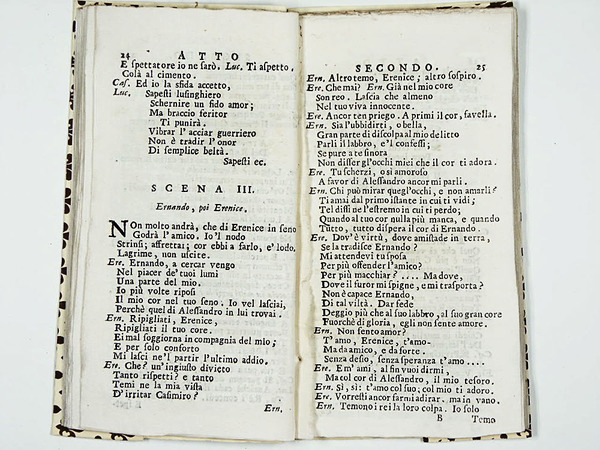 24 ATTO
E spettatore io ne sarò. Luc. Ti aspetto.
Colà al cimento.
Cas. Ed io la sfida accetto,
Luc. Sapesti lusinghiero
Schernire un fido amor;
Ma braccio feritor
Ti punirà.
Vibrar l'acciar guerriero
Non è tradir l'onor
Di semplice beltà.
Sapesti ec.
SCENA III.
Ernando, poi Erenice.
NOn molto andrà, che di Erenice in seno
Godrà l'amico. Io 'l nodo
Strinsi; affrettai; cor ebbi a farlo, e'lodo.
Lagrime, non uscite.
Ere. Ernando, a cercar vengo
Nel piacer de' tuoi lumi
Una parte del mio.
Io più volte riposi
Il mio cor nel tuo seno. Io vel lasciai,
Perchè quel di Alessandro in lui trovai.
Ern. Ripigliati, Erenice,
Ripigliati il tuo core.
Ei mal soggiorna in compagnia del mio;
E per solo conforto
Mi lasci ne'l partir l'ultimo addio.
Ere. Che? un'ingiusto divieto
Tanto rispetti? e tanto
Temi ne la mia vista
D'irritar Casimiro?
Ern.
SECONDO. 25
Ern. Altro temo, Erenice; altro sospiro.
Ere. Che mai? Ern. Già nel mio core
Son reo. Lascia che almeno
Nel tuo viva innocente.
Ere. Ancor ten priego. A primi il cor, favella.
Ern. Sia l'ubbidirti, o bella,
Gran parte di discolpa al mio delitto
Parli il labbro, e'l confessi;
Se pure a te sinora
Non disser gl'occhi miei che il cor ti adora.
Ere. Tu scherzi, o sì amoroso
A favor di Alessandro ancor mi parli.
Ern. Chi può mirar quegl'occhi, e non amarli?
Ti amai dal primo istante in cui ti vidi;
Tel dissi ne l'estremo in cui ti perdo;
Quando al tuo cor nulla più manca, e quando
Tutto, tutto dispera il cor di Ernando.
Ere. Dov'è virtù, dove amistade in terra,
Se la tradisce Ernando?
Mi attendevi tu sposa
Per più offender l'amico?
Per più macchiar?.... Ma dove,
Dove il furor mi spigne, e mi trasporta?
Non è capace Ernando,
Di tal viltà. Dar fede
Deggio più che al suo labbro, al suo gran core
Fuorchè di gloria, egli non sente amore.
Ern. Non sento amor?
T'amo, Erenice, t'amo-
Ma da amico, e da forte.
Senza desio, senza speranza t'amo....
Ere. Em'ami, al fin vuoi dirmi,
Ma col cor di Alessandro, il mio tesoro.
Ern. Sì, sì: t'amo col suo; col mio ti adoro.
Ere. Vorresti ancor farmi adirar. ma in vano.
Ern. Temono i rei la loro colpa. Io solo
B Temo